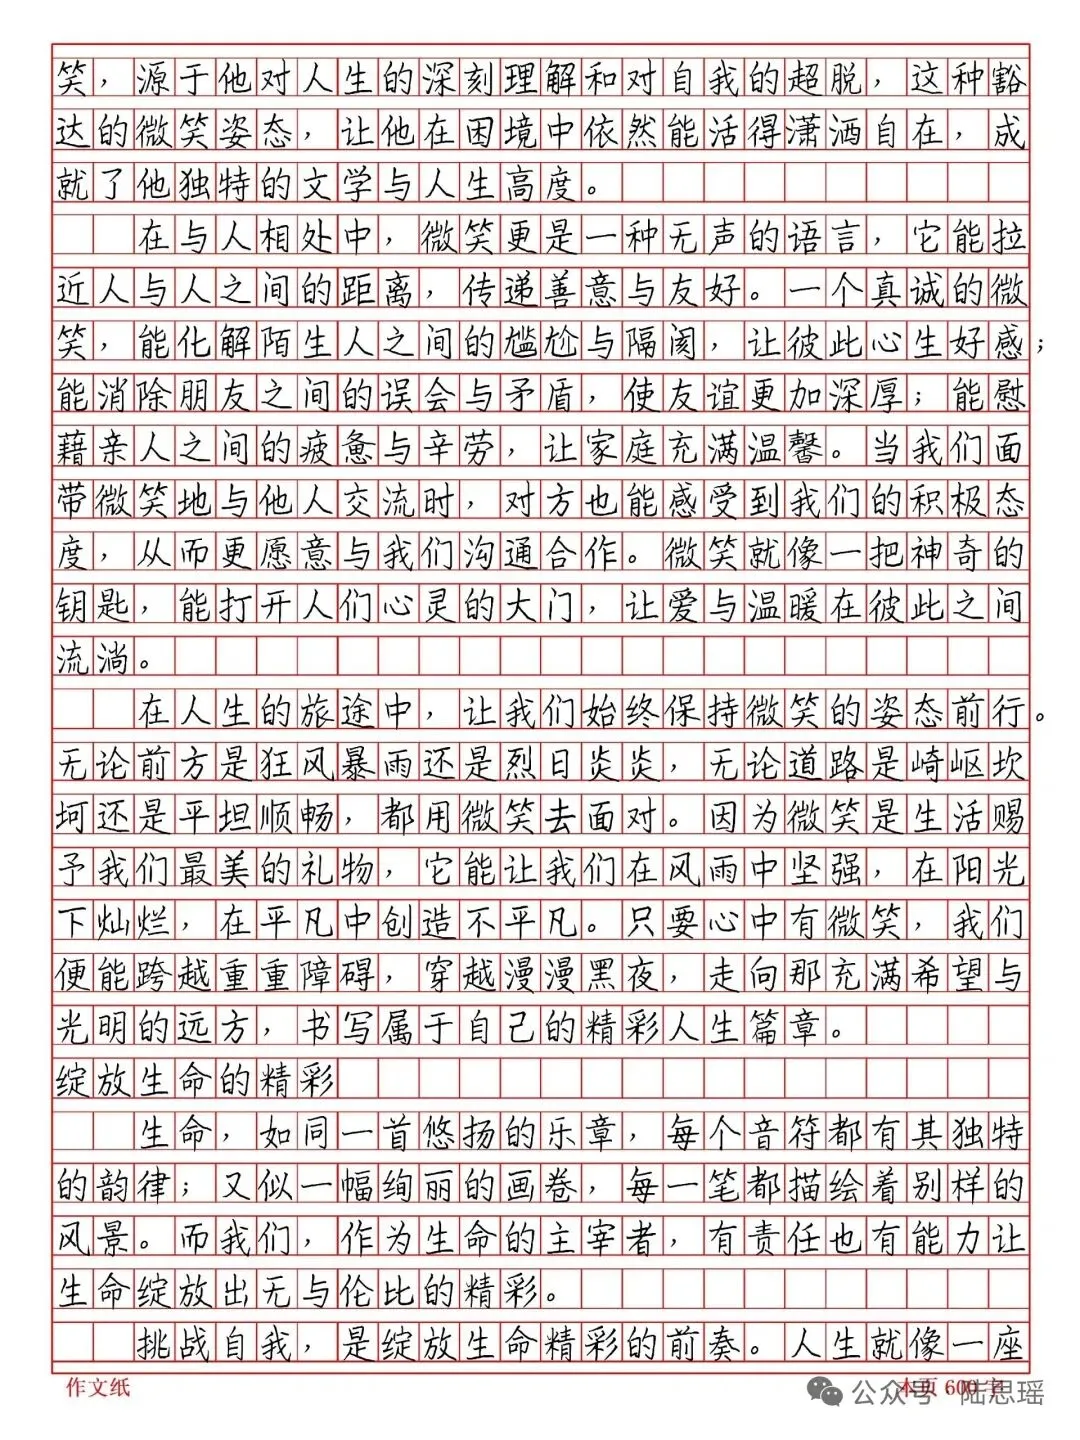 笑，源于他对人生的深刻理解和对自我的超脱，这种豁
达的微笑姿态，让他在困境中依然能活得潇洒自在，成
就了他独特的文学与人生高度。
在与人相处中，微笑更是一种无声的语言，它能拉
近人与人之间的距离，传递善意与友好。一个真诚的微
笑，能化解陌生人之间的尴尬与隔阂，让彼此心生好感；
能消除朋友之间的误会与矛盾，使友谊更加深厚；能慰
藉亲人之间的疲惫与辛劳，让家庭充满温馨。当我们面
带微笑地与他人交流时，对方也能感受到我们的积极态
度，从而更愿意与我们沟通合作。微笑就像一把神奇的
钥匙，能打开人们心灵的大门，让爱与温暖在彼此之间
流淌。
在人生的旅途中，让我们始终保持微笑的姿态前行。
无论前方是狂风暴雨还是烈日炎炎，无论道路是崎岖坎
坷还是平坦顺畅，都用微笑去面对。因为微笑是生活赐
予我们最美的礼物，它能让我们在风雨中坚强，在阳光
下灿烂，在平凡中创造不平凡。只要心中有微笑，我们
便能跨越重重障碍，穿越漫漫黑夜，走向那充满希望与
光明的远方，书写属于自己的精彩人生篇章。
绽放生命的精彩
生命，如同一首悠扬的乐章，每个音符都有其独特
的韵律；又似一幅绚丽的画卷，每一笔都描绘着别样的
风景。而我们，作为生命的主宰者，有责任也有能力让
生命绽放出无与伦比的精彩。
挑战自我，是绽放生命精彩的前奏。人生就像一座
作文纸
本页 600 字
公众号·陆思瑶